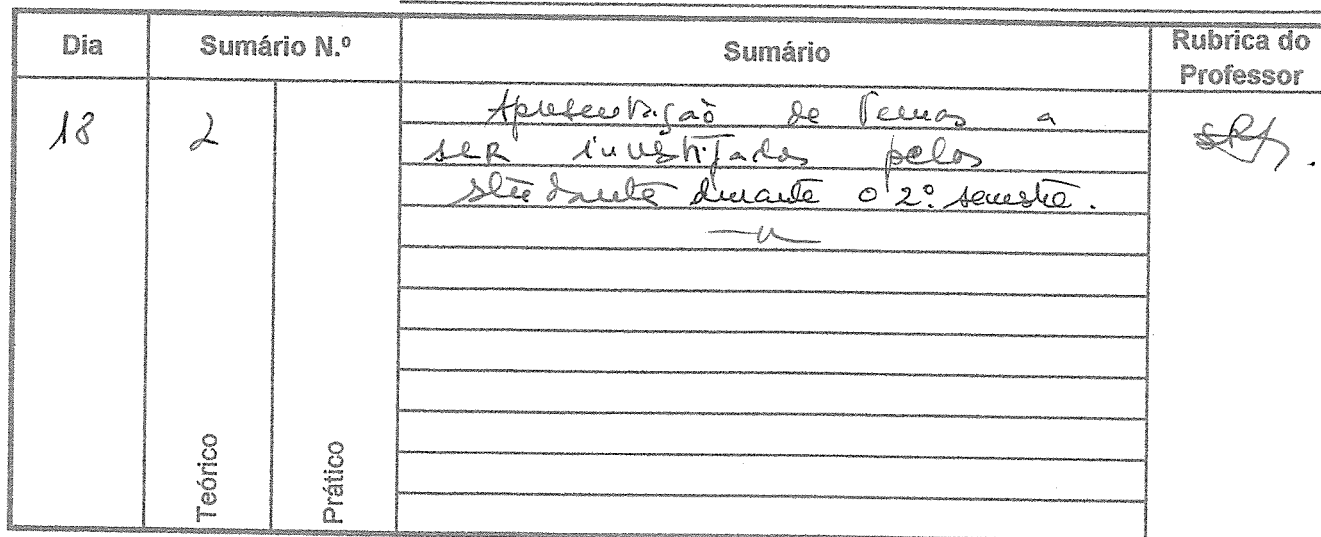 Dia Sumário N.º Sumário Rubrica do Professor
18 2
Apresentação de Temas a
ser investigados pelos
durante o 2º semestre.
Teórico
Prático